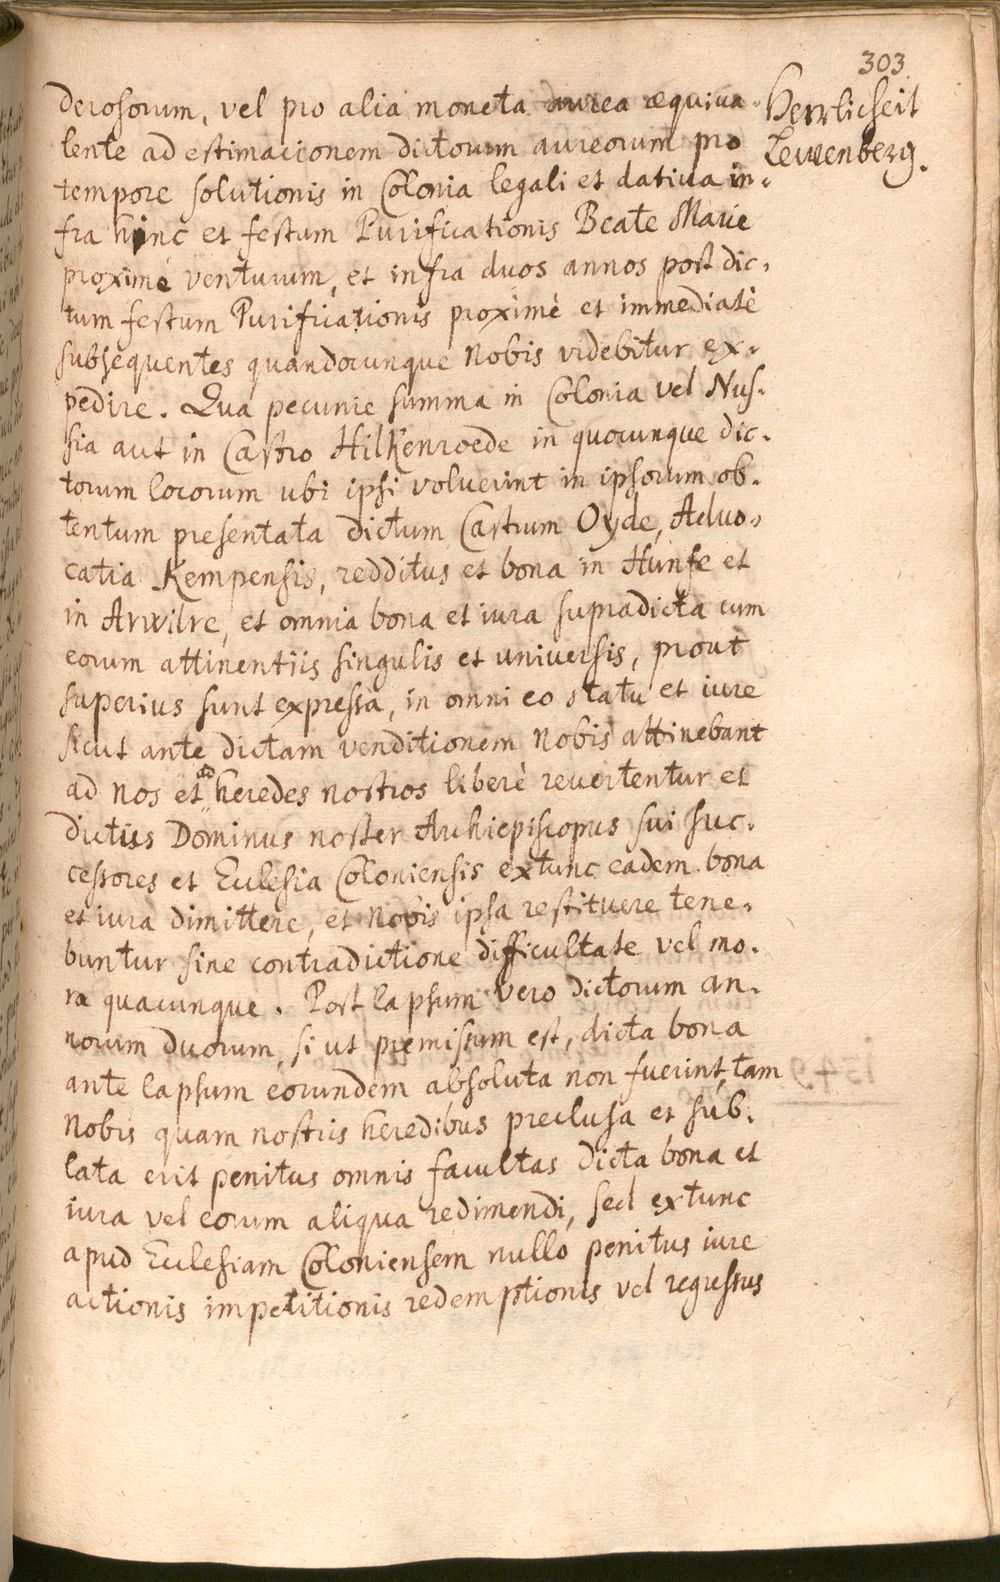 303
Herrlicheit
Lewenberg.
derosorum, vel pro alia moneta aurea æquiua-
lente ad estimacionem dictorum aureorum pro
tempore solutionis in Colonia legali et datiua in-
fra hinc et festum Purificationis Beate Marie
proximè venturum, et infra duos annos post dic-
tum festum Purificationis proximè et immediatè
subsequentes quandocunque nobis videbitur ex-
pedire. Qua pecunie summa in Colonia vel Nus-
sia aut in Castro Hilkenroede in quocunque dic-
torum locorum ubi ipsi voluerint in ipsorum ob-
tentum presentata dictum Castrum Oyde, Aduo-
catia Kempensis, redditus et bona in Hunfe et
in Arwilre, et omnia bona et iura supradicta cum
eorum attinentiis singulis et universis, prout
superius sunt expressa, in omni eo statu et iure
sicut ante dictam venditionem nobis attinebant
ad nos et ad heredes nostros liberè revertentur et
dictus Dominus noster Archiepiscopus sui suc-
cessores et Ecclesia Coloniensis extunc eadem bona
et iura dimittere, et nobis ipsa restituere tene-
buntur sine contradictione difficultate vel mo-
ra quacunque. Post lapsum vero dictorum an-
norum duorum, si ut premissum est, dicta bona
ante lapsum eorundem absoluta non fuerint, tam
nobis quam nostris heredibus preclusa et sub-
lata erit penitus omnis facultas dicta bona et
iura vel eorum aliqua redimendi, sed extunc
apud Ecclesiam Coloniensem nullo penitus iure
actionis impetitionis redemptionis vel regressus